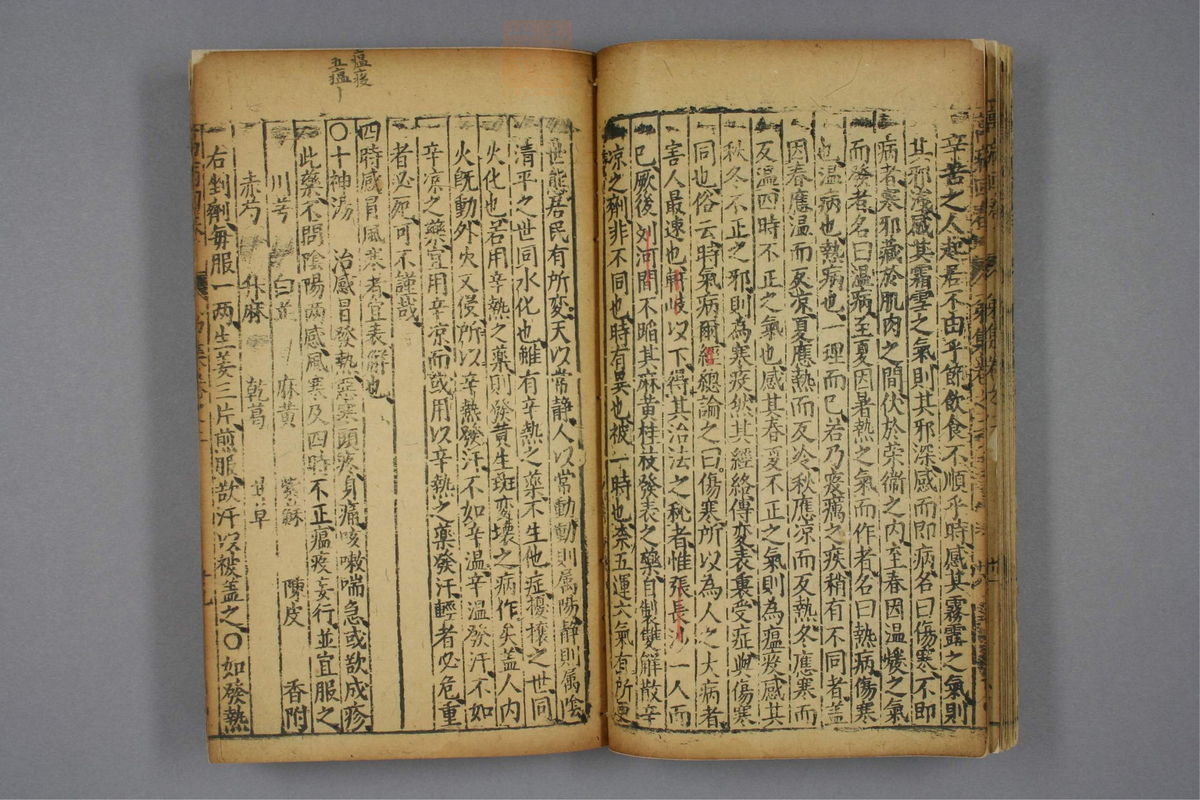 辛苦之人起居不由乎節飲食不順乎時感其霧露之氣則
其邪淺感其霜雪之氣則其邪深感而即病名曰傷寒不即
病者寒邪藏於肌肉之間伏於荣衛之内至春因温煖之氣
而發者名曰温病至夏因暑熱之氣而作者名曰熱病傷寒
也温病也熱病也一理而已若乃疫癘之疾稍有不同者盖
因春應温而反凉夏應熱而反冷秋應凉而反熱冬應寒而
反温四時不正之氣也感其春夏不正之氣則為瘟疫感其
秋冬不正之邪則為寒疫然其經絡傳変表裏受症與傷寒
同也俗云時氣病爾經總論之曰傷寒所以為人之大病者
害人最速也軒岐以下得其治法之秘者惟張長沙一人而
已厥後刘河間不蹈其麻黄桂枝發表之藥自製雙解散辛
凉之劑非不同也時有異也彼一時也奈五運六氣有所更
世態居民有所変天以常静人以常動動則属陽静則属陰
清平之世同水化也雖有辛熱之藥不生他症擾攘之世同
火化也若用辛熱之藥則發黄生斑変壊之病作矣盖人内
火旣動外火又侵所以辛熱發汗不如辛温辛温發汗不如
辛凉之藥宜用辛凉而或用以辛熱之藥發汗輕者必危重
者必死可不謹哉
四時感冒風寒者宜表解也
〇十神湯 治感冒發熱惡寒頭疼身痛咳嗽喘急或欲成疹
此藥不問陰陽两感風寒及四時不正瘟疫妄行並宜服之
川芎 白芷 麻黄 紫蘇 陳皮 香附
赤芍 升麻 乾葛 甘草
右剉劑每服一两生姜三片煎服欲汗以被盖之〇如發熱
瘟疫
五瘟